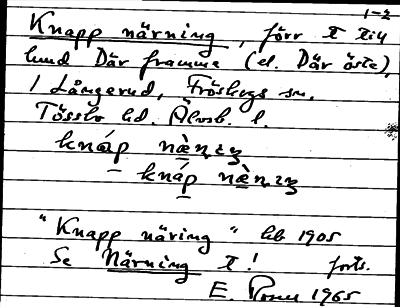 1-2
Knapp närning, förr t till
lund Där framme (el. Där öste),
i Långerud, Fröskogs sn,
Tössbo hd. Älvsb. l.
knáp
knáp
"Knapp näring" hb 1905
Se Närning t! forts.
E. 1965